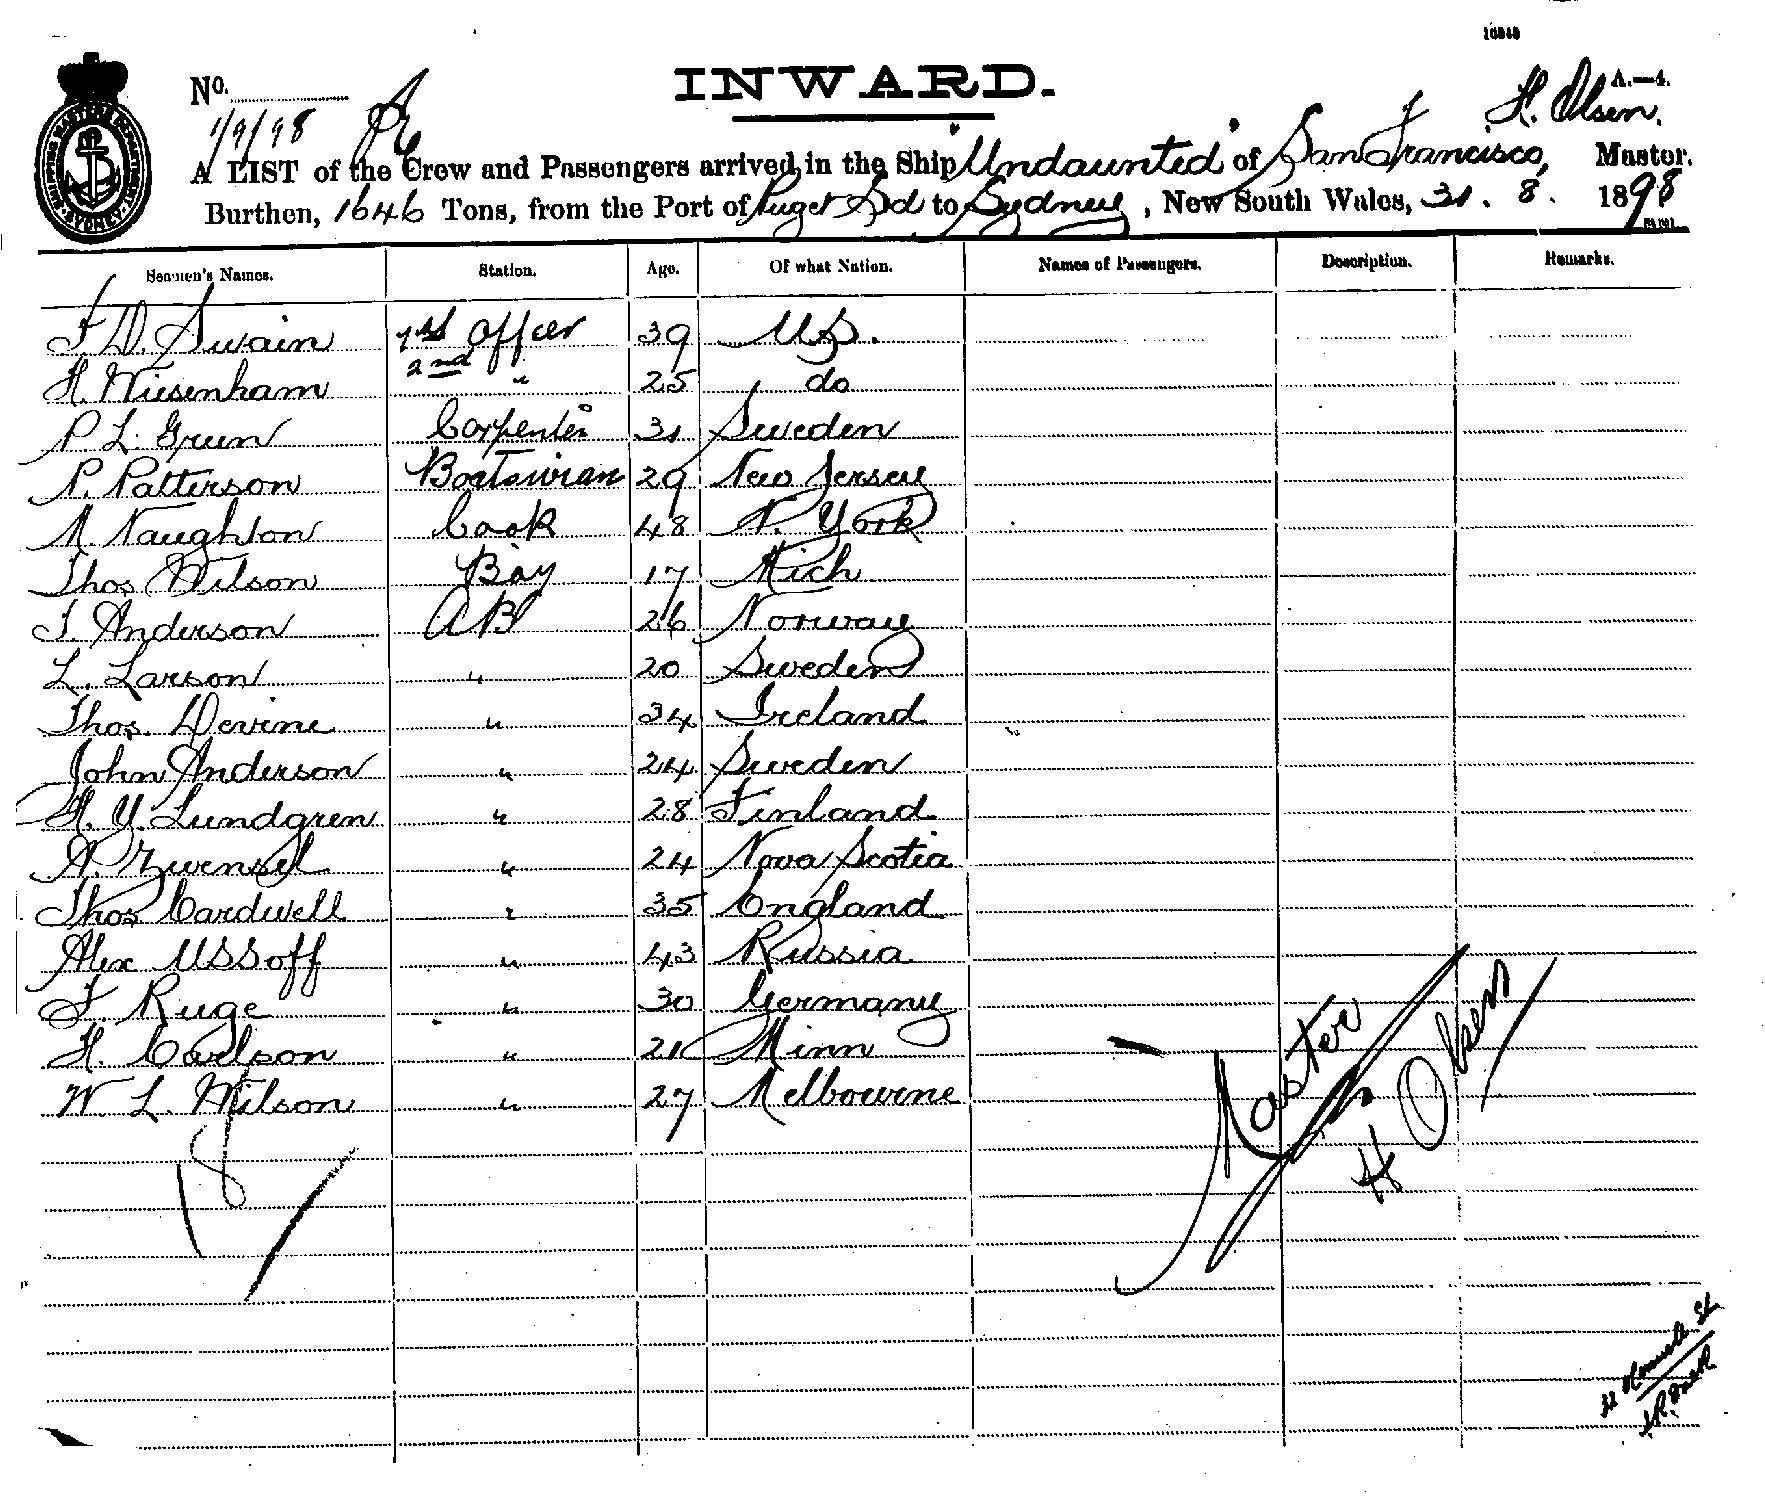 10848
INWARD.
A.—4.
No.
1/9/98
H. Olsen.
A LIST of the Crew and Passengers arrived in the Ship "Undaunted" of San Francisco, Master.
Burthen, 1646 Tons, from the Port of Puget Sd to Sydney, New South Wales, 31. 8. 1898
Seamen's Names. Station. Age. Of what Nation. Names of Passengers. Description. Remarks.
F. D. Swain 1st Officer 39 U.S.
H. Wiesenham 2nd " 25 do
P. L. Grun Carpenter 31 Sweden
P. Patterson Boatswian 29 New Jersey
M. Naughton Cook 48 N. York
Thos Wilson Boy 17 Mich
T. Anderson AB 26 Norway
L. Larson " 20 Sweden
Thos. Devine " 34 Ireland
John Anderson " 24 Sweden
H. Y. Lundgren " 28 Finland
A. Zwensel " 24 Nova Scotia
Thos. Cardwell " 35 England
Alex Ussoff " 43 Russia
F. Ruge " 30 Germany
H. Carlson " 21 Minn
W. L. Wilson " 27 Melbourne
Master
H Olsen